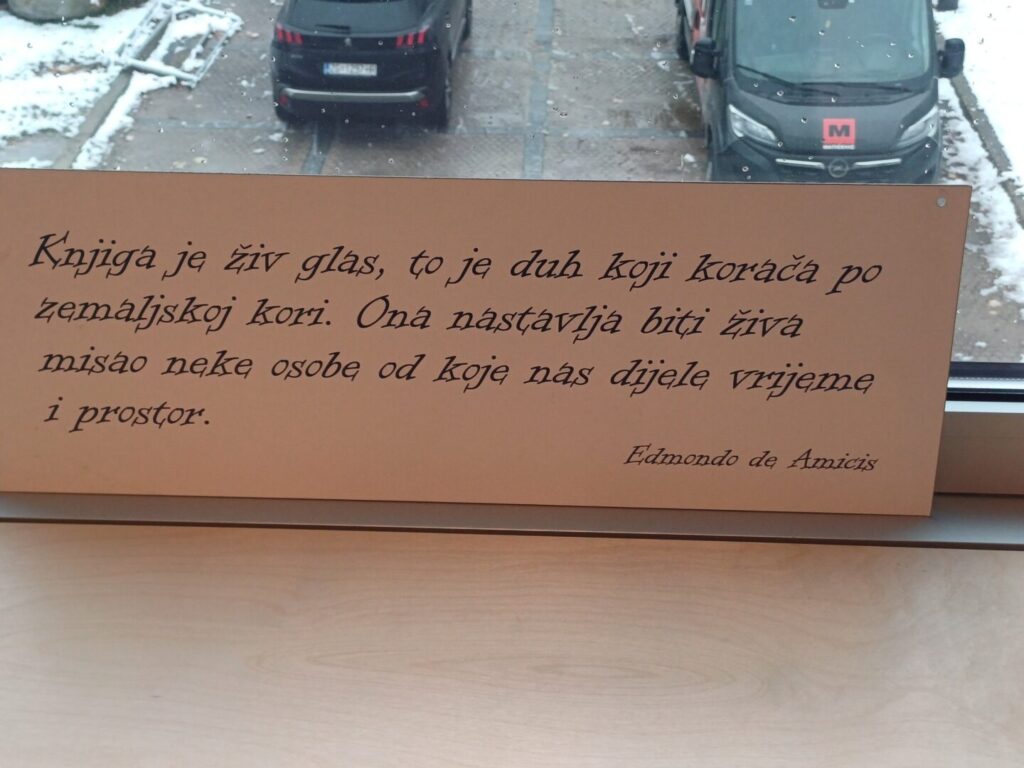 M
Knjiga je živ glas, to je duh koji korača po
zemaljskoj kori. Ona nastavlja biti živa
misao neke osobe od koje nas dijele vrijeme
i prostor.
Edmondo de Amicis